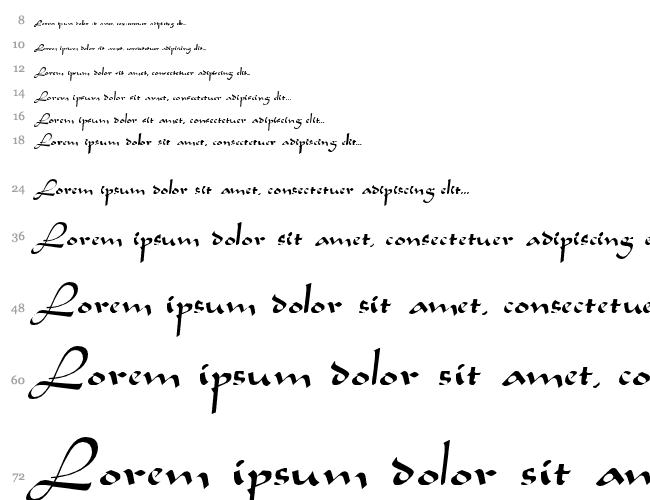 8 Lorem ipsum dolor sit amet, consectetuer adipiscing elit...
10 Lorem ipsum dolor sit amet, consectetuer adipiscing elit...
12 Lorem ipsum dolor sit amet, consectetuer adipiscing elit...
14 Lorem ipsum dolor sit amet, consectetuer adipiscing elit...
16 Lorem ipsum dolor sit amet, consectetuer adipiscing elit...
18 Lorem ipsum dolor sit amet, consectetuer adipiscing elit...
24 Lorem ipsum dolor sit amet, consectetuer adipiscing elit...
36 Lorem ipsum dolor sit amet, consectetuer adipiscing e
48 Lorem ipsum dolor sit amet, consectetue
60 Lorem ipsum dolor sit amet, co
72 Lorem ipsum dolor sit am